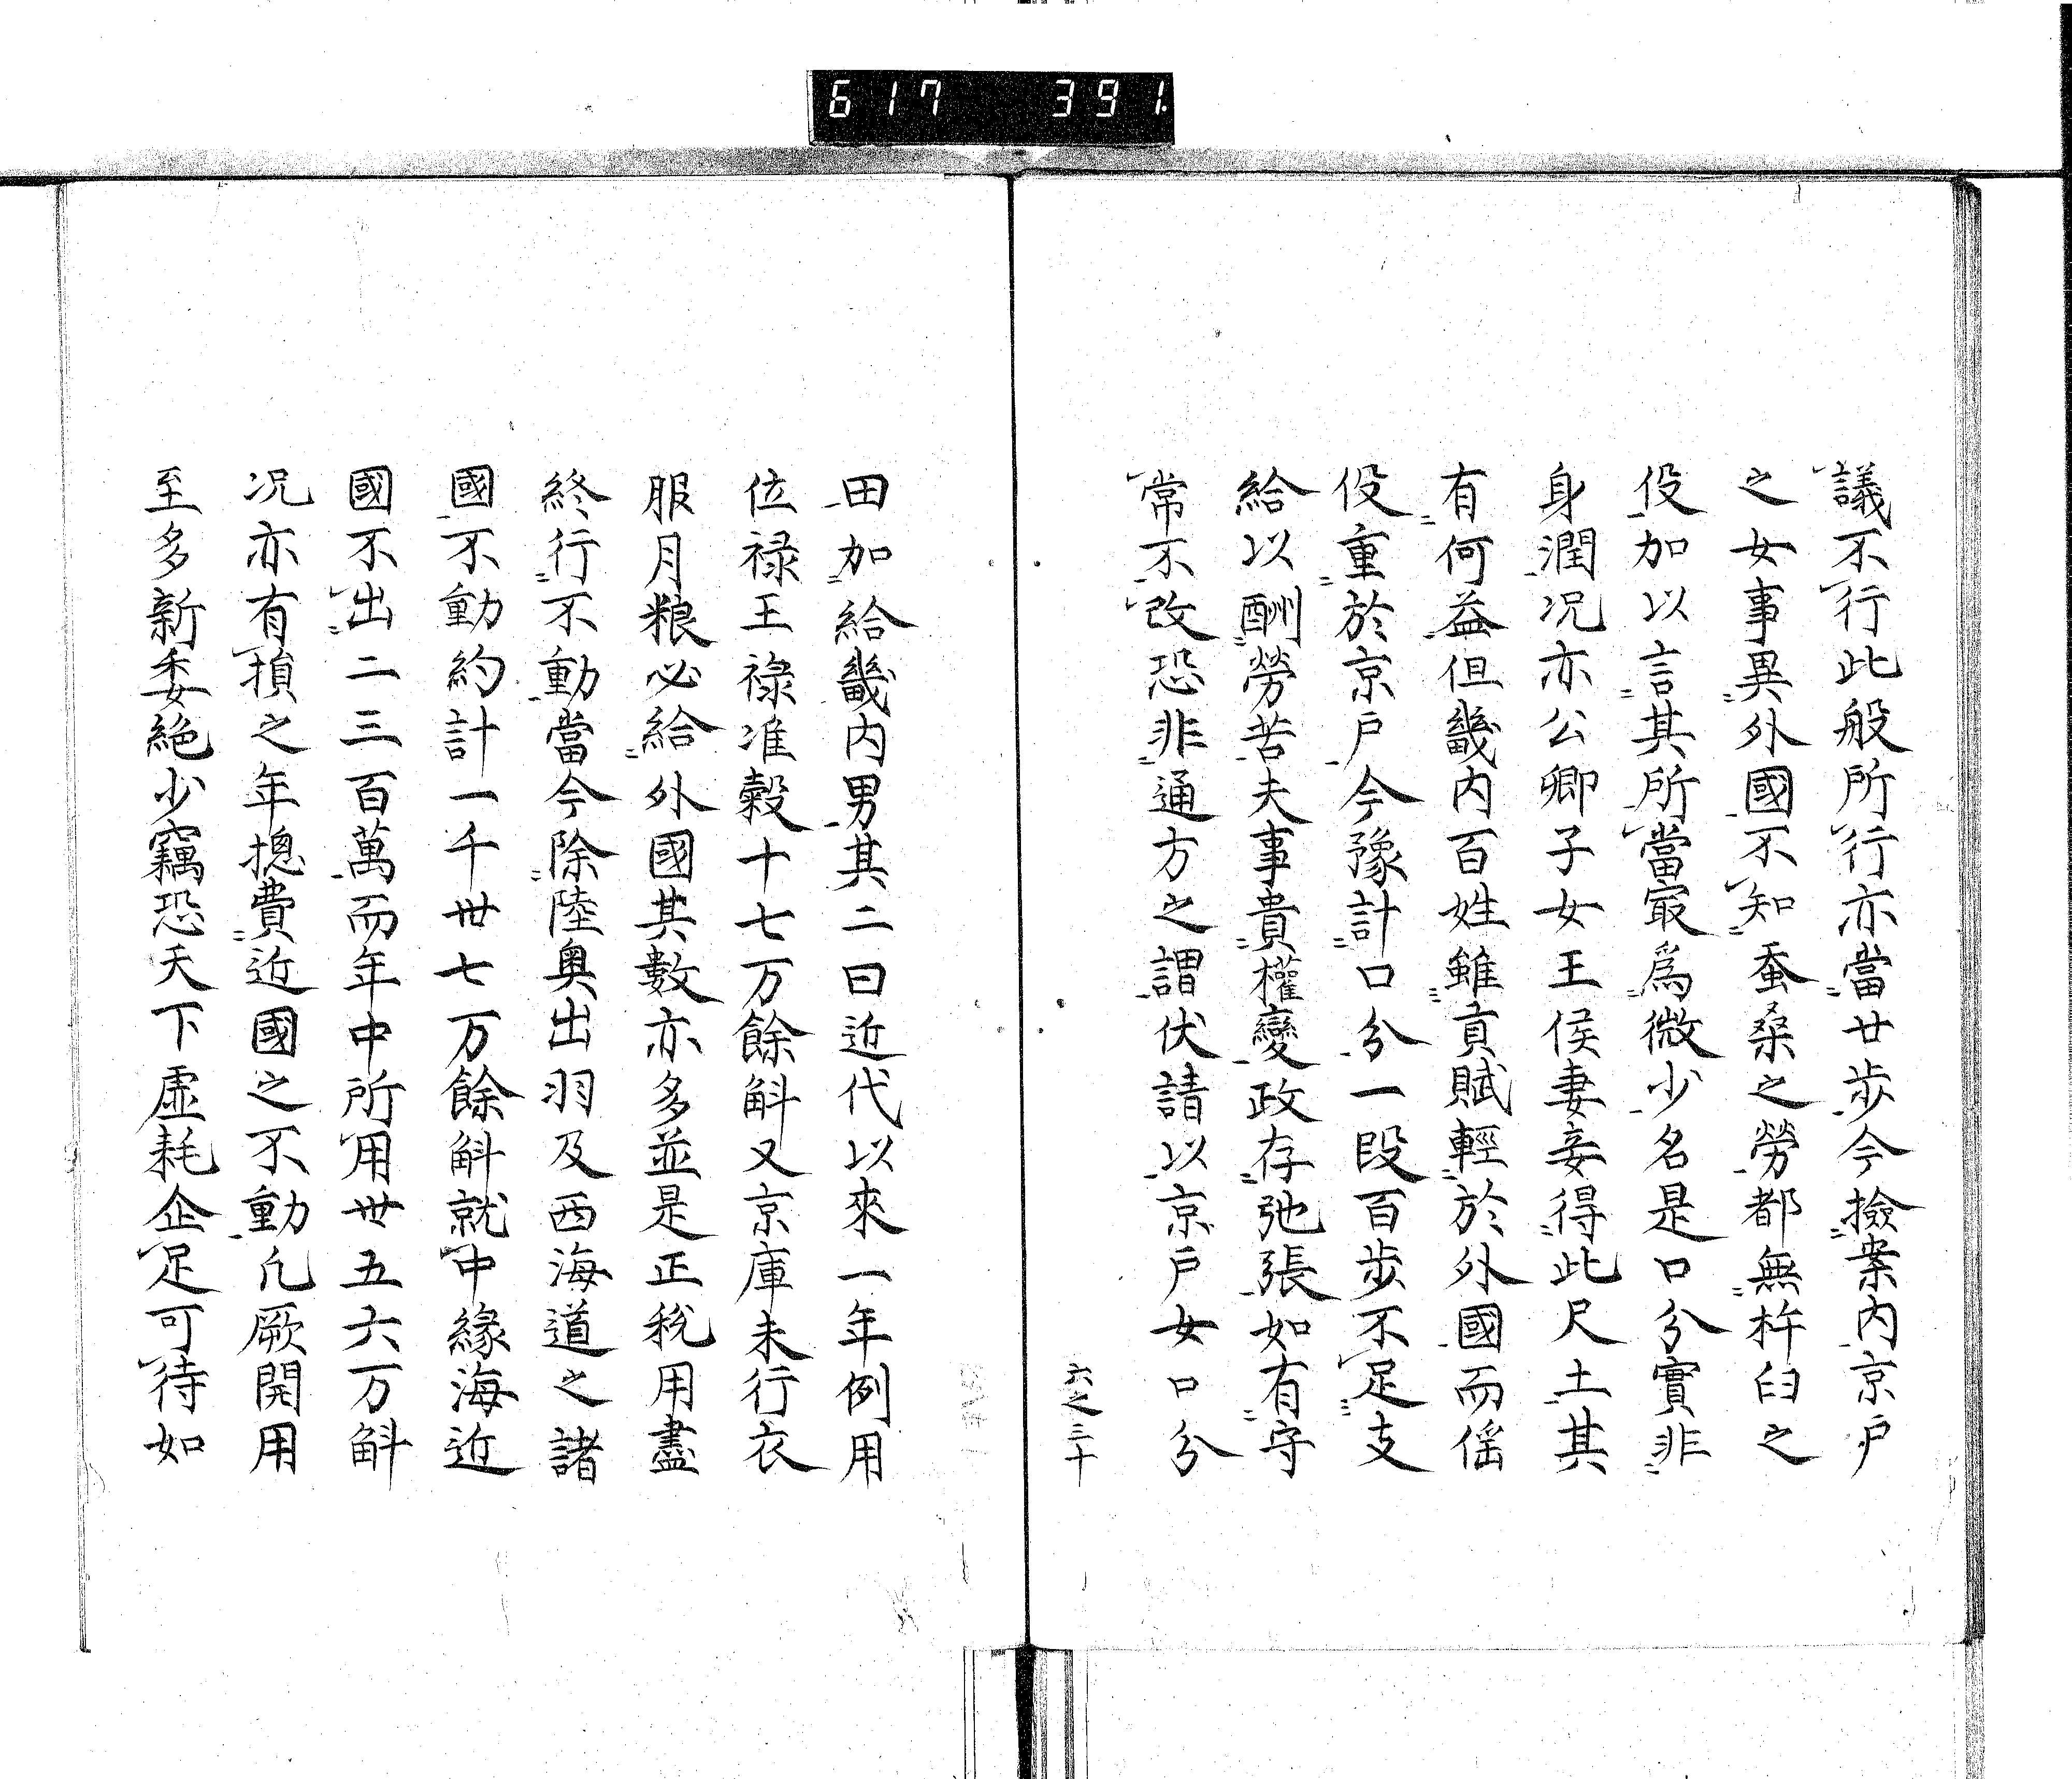 617 391
議不行此般所行亦當廿歩今撿案内京戸
之女事異外國不知蚕桑之勞都無杵臼之
役加以言其所當最爲微少名是口分實非
身潤况亦公卿子女王侯妻妾得此尺土其
有何益但畿内百姓雖貢賦輕於外國而徭
役重於京戸今豫計口分一段百歩不足支
給以酬勞苦夫事貴權變政存弛張如有守
常不改恐非通方之謂伏請以京戸女口分
六之三十
田加給畿内男其二曰近代以來一年例用
位禄王禄准穀十七万餘斛又京庫未行衣
服月粮必給外國其數亦多並是正税用盡
終行不動當今除陸奥出羽及西海道之諸
國不動約計一千丗七万餘斛就中緣海近
國不出二三百萬而年中所用丗五六万斛
况亦有損之年摠費近國之不動凢厥開用
至多新委絶少竊恐天下虛耗企足可待如